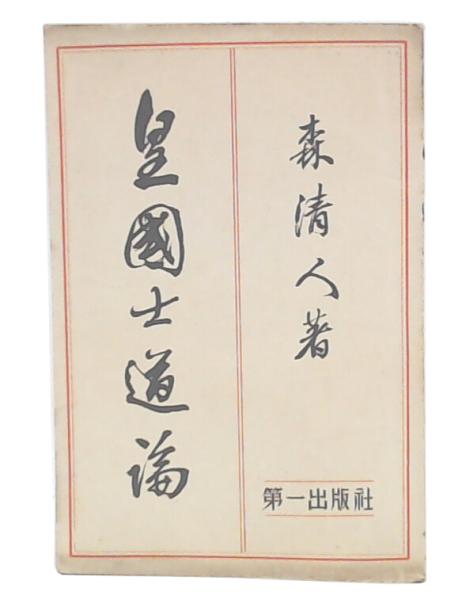 森清人著
皇國士道論
第一出版社